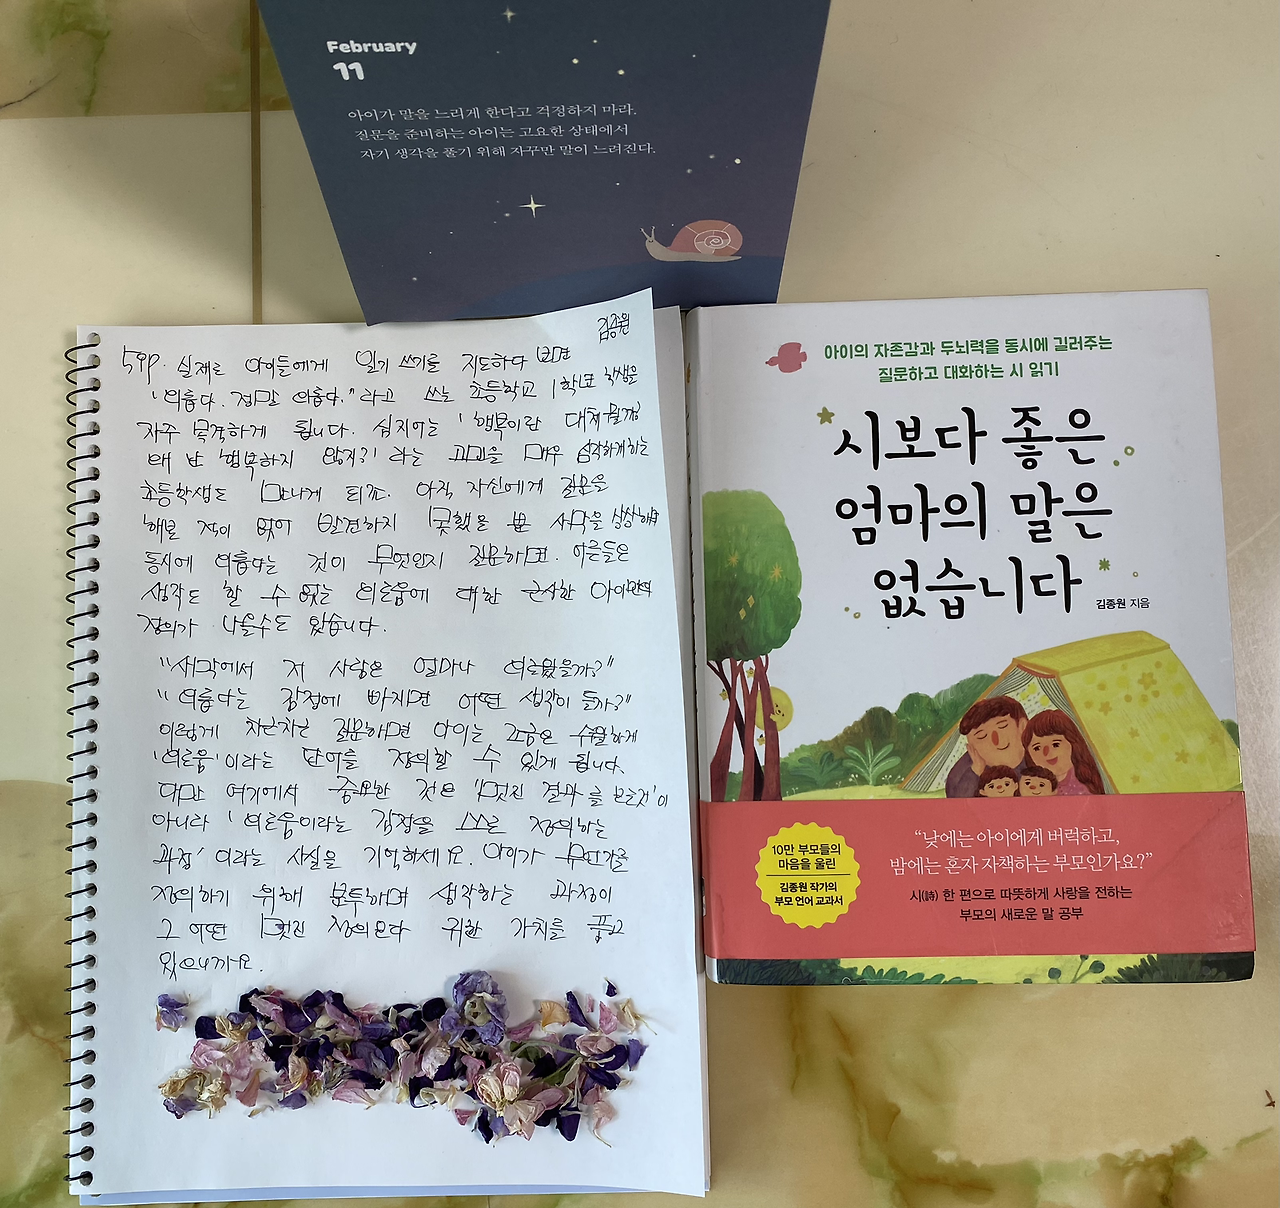 February
11
아이가 말을 느리게 한다고 걱정하지 마라.
질문을 준비하는 아이는 고요한 상태에서
자기 생각을 풀기 위해 자꾸만 말이 느려진다.
김종원
59p. 실제로 아이들에게 일기 쓰기를 지도하다 보면
'외롭다. 정말 외롭다." 라고 쓰는 초등학교 1학년 학생을
자주 목격하게 됩니다. 심지어는 '행복이란 대체 뭘까?
왜 난 행복하지 않지?' 라는 고민을 매우 심각하게 하는
초등학생도 만나게 되죠. 아직 자신에게 질문을
해본 적이 없어 발견하지 못했을 뿐 새싹을 상상해
동시에 외롭다는 것이 무엇인지 질문하면. 어른들은
생각도 할 수 없는 외로움에 대한 근사한 아이만의
정의가 나올수도 있습니다.
"새싹에서 저 사람은 얼마나 외로웠을까?"
"외롭다는 감정에 빠지면 어떤 생각이 들까?"
이렇게 차근차근 질문하면 아이는 조금은 수월하게
'외로움'이라는 단어를 정의할 수 있게 됩니다.
다만 여기에서 중요한 것은 '멋진 결과를 만들것'이
아니라 '외로움이라는 감정을 스스로 정의하는
과정' 이라는 사실을 기억하세요. 아이가 무언가를
정의하기 위해 분투하며 생각하는 과정이
그 어떤 멋진 정의보다 귀한 가치를 품고
있으니까요.
아이의 자존감과 두뇌력을 동시에 길러주는
질문하고 대화하는 시 읽기
시보다 좋은
엄마의 말은
없습니다
김종원 지음
10만 부모들의
마음을 울린
김종원 작가의
부모 언어 교과서
"낮에는 아이에게 버럭하고,
밤에는 혼자 자책하는 부모인가요?"
시(詩) 한 편으로 따뜻하게 사랑을 전하는
부모의 새로운 말 공부